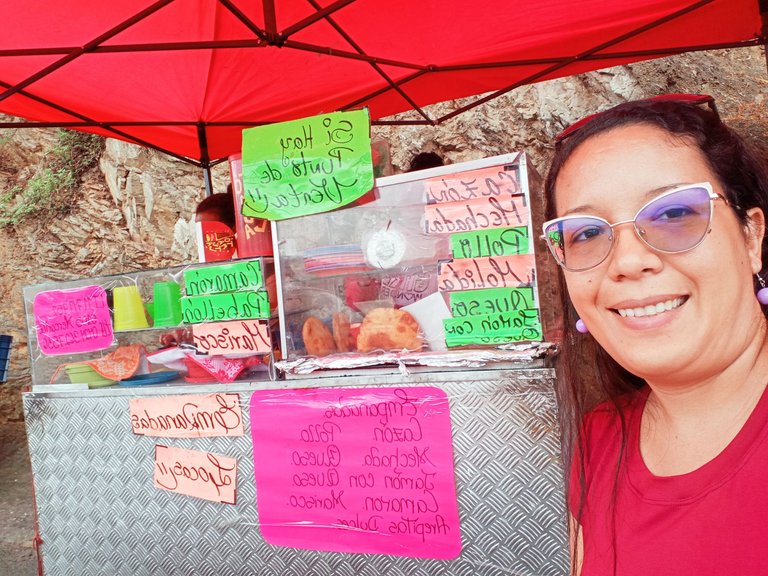 Si Hay
Punto de
Venta!!!
Cazón
Mechada
Pollo
Molida
Queso
Jamón con
Queso
Camaron
Pabellon
Marisco
Empanadas
Locas!!!
Empanadas
Cazón Pollo
Mechada. Queso.
Jamón con Queso
Camaron Marisco.
Arepitas Dulce